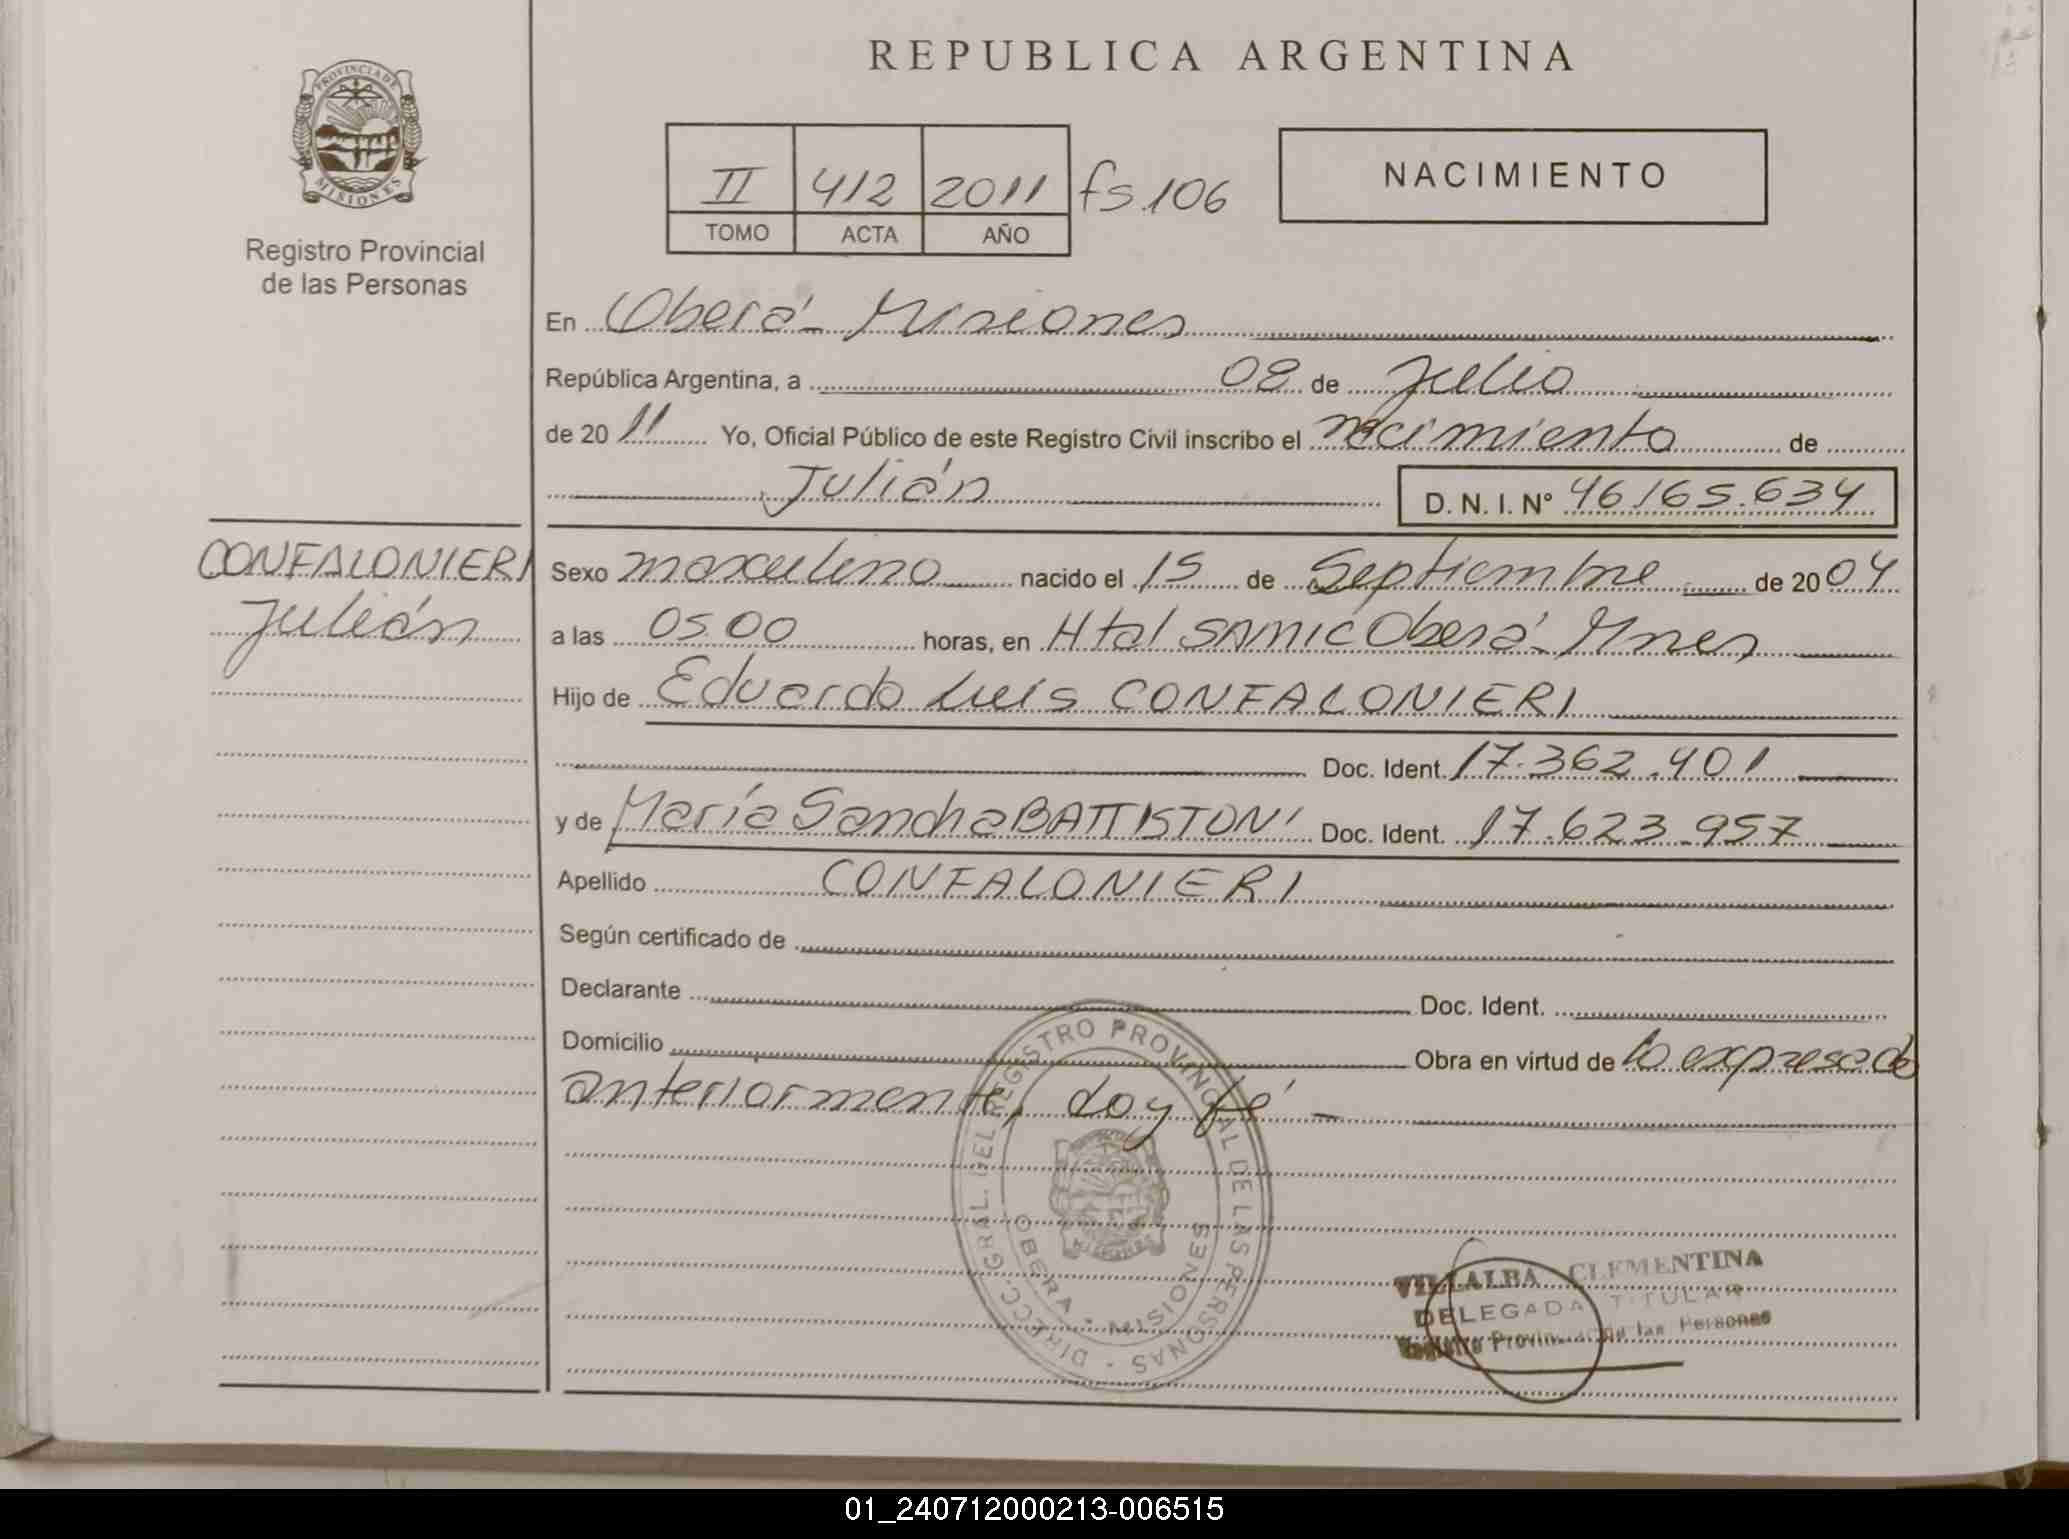 REPUBLICA ARGENTINA
PROVINCIA DE
MISIONES
Registro Provincial
de las Personas
II 412 2011 fs.106
TOMO ACTA AÑO
NACIMIENTO
En Oberá - Misiones
República Argentina, a 08 de Julio
de 2011 Yo, Oficial Público de este Registro Civil inscribo el nacimiento de
Julián D. N. I. N° 46.165.634
CONFALONIERI
Julián
Sexo masculino nacido el 15 de Septiembre de 2004
a las 05.00 horas, en Htal SAMIC Oberá - Mnes
Hijo de Eduardo Luis CONFALONIERI
Doc. Ident. 17.362.401
y de María Sandra BATTISTONI Doc. Ident. 17.623.957
Apellido CONFALONIERI
Según certificado de
Declarante Doc. Ident.
Domicilio Obra en virtud de lo expresado
anteriormente, doy fé -
DIRECC. GRAL. DEL REGISTRO PROVINCIAL DE LAS PERSONAS
OBERA - MISIONES
VILLALBA CLEMENTINA
DELEGADA TITULAR
Registro Provincial de las Personas
01_240712000213-006515